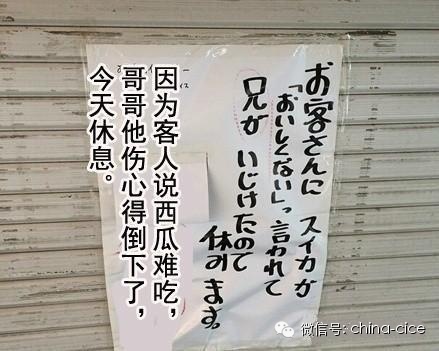 お客さんに スイカが
「おいしくない」って言われて
兄が いじけたので
休みます。
因为客人说西瓜难吃，
哥哥他伤心得倒下了，
今天休息。
微信号: china-cice